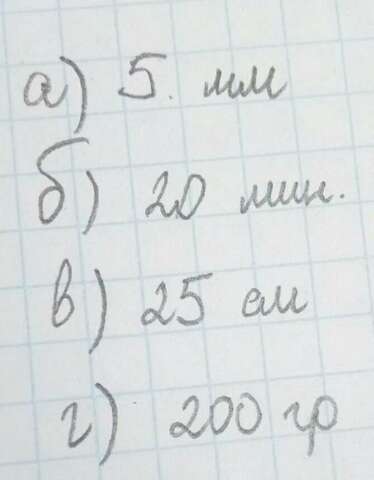 а) 5 мм
б) 20 мин.
в) 25 см
г) 200 гр